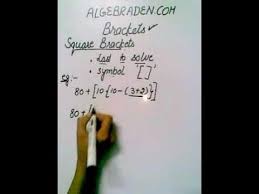 ALGEBRADEN.COM
Brackets ✓
Square Brackets
• Last to solve
• symbol '[ ]'
Eg:-
80 + [10 {10 - (3+2)}]
80 + [